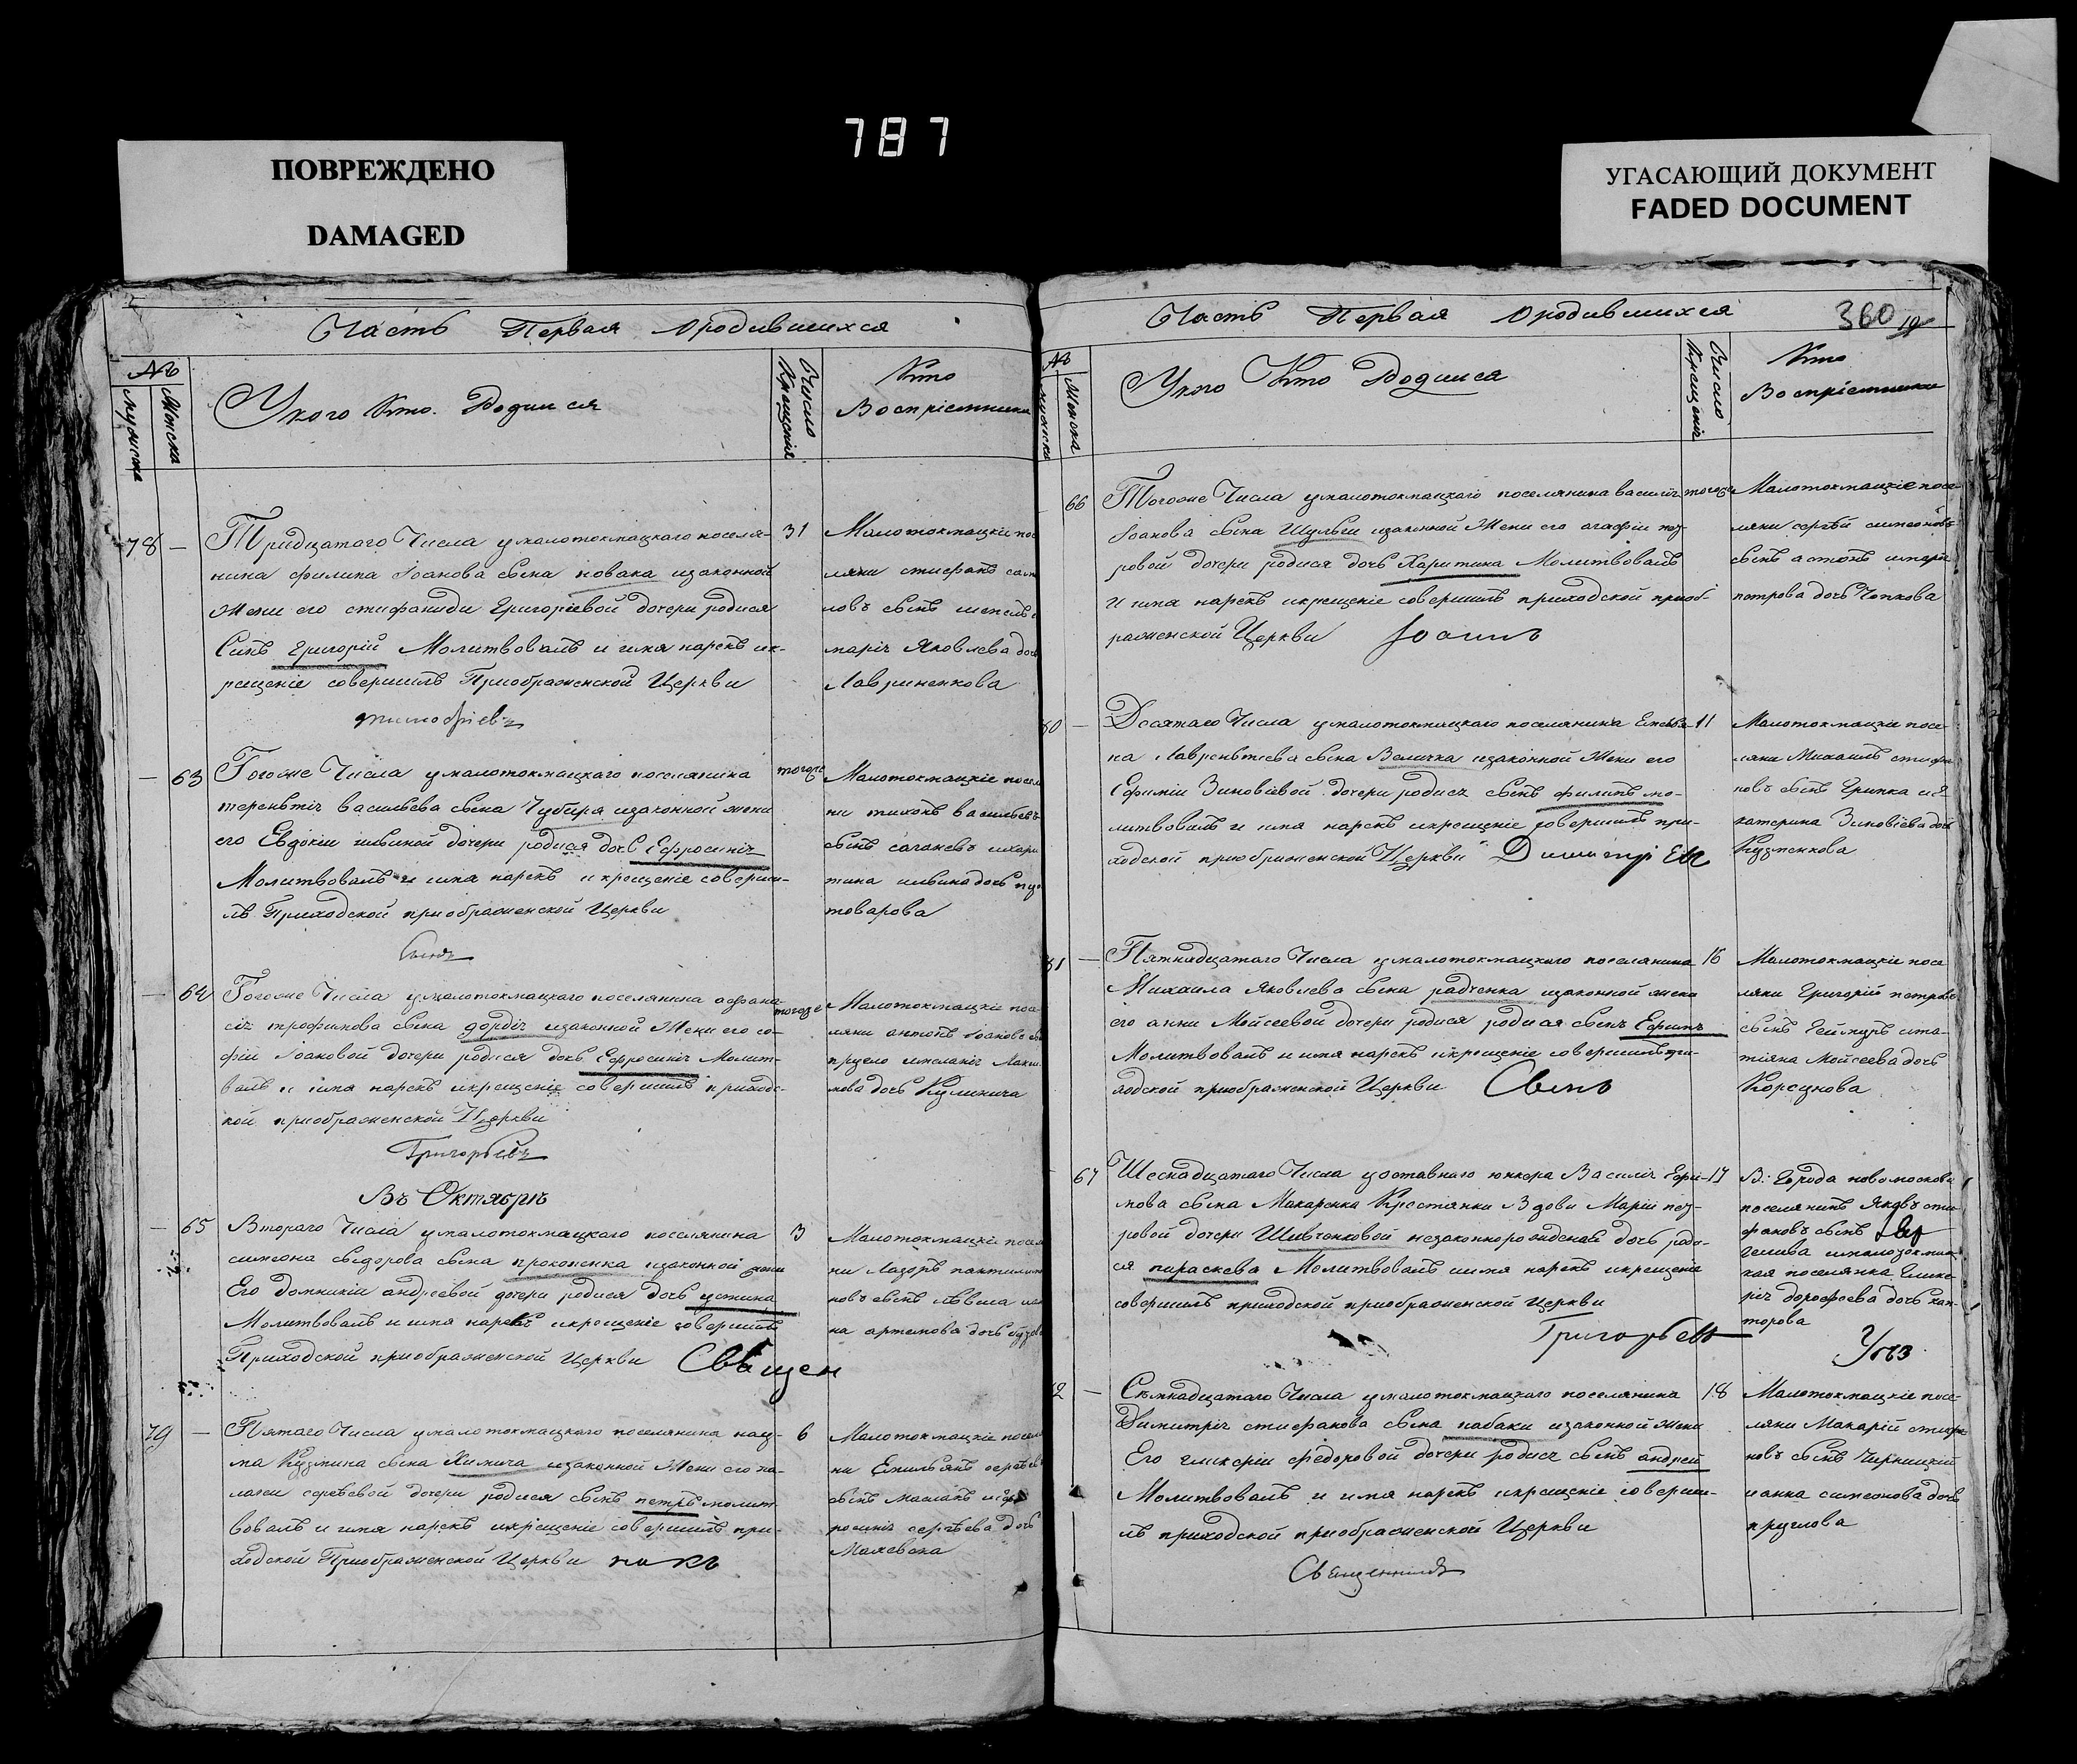 787
ПОВРЕЖДЕНО
DAMAGED
УГАСАЮЩИЙ ДОКУМЕНТ
FADED DOCUMENT
Часть Первая Ородившихся
№
Мужеска
Женска
Укого Кто Родился
Число Крещения
Кто Воспріемники
78
Тридцатаго Числа умалотокмацкаго поселя-
нина филипа Іоанова сына новака изаконной
жены его стифаниди Григоріевой дочери родися
Синъ григорій Молитвовалъ и имя нарекъ ик-
рещеніе совершилъ Приображенской Церкви
31
Малотокмацкіе пос
ляни стифанъ
новъ сынъ
марія Яковлева доч
Лавриненкова
63
Тогоже Числа умалотокмацкаго поселянина
терентія васильева сына Чубиря изаконной жени
его Евдокіи ильиной дочери родися дочь Ефросинія
Молитвовалъ и имя нарекъ и крещеніе соверши-
лъ Приходской приображенской Церкви
тогоже
Малотокмацкіе посел
ни тихонъ васильевъ
сынъ сагановъ ихари
тина ильина дочь
товарова
64
Тогоже Числа умалотокмацкаго поселянина афана-
сія трофимова сына гордія изаконной Жени его со-
фіи Іоановой дочери родися дочь Ефросинія Молит-
валъ и имя нарекъ икрещеніе совершилъ приходс-
кой приображенской Церкви
Григорьевъ
тогоже
Малотокмацкіе посе
ляни антонъ Іоановъ
имеланія Маки
мова дочь Кулинича
Въ Октябрѣ
65
Втораго Числа умалотокмацкаго поселянина
симеона сидорова сына прокопенка изаконной жени
Его домникіи андреевой дочери родися дочь устина
Молитвовалъ и имя нарекъ икрещеніе совершилъ
Приходской приображенской Церкви Свѣщен
3
Малотокмацкіе посел
ни Лазоръ пантилим
новъ сынъ
на артемова дочь
79
Пятаго Числа умалотокмацкаго поселянина нау-
ма Кузмина сына Химича изаконной Жени его па-
лагеи сергѣевой дочери родися сынъ петръ молит-
вовалъ и имя нарекъ икрещеніе совершилъ при-
ходской Приображенской Церкви никъ
6
Малотокмацкіе посел
ни Емильянъ
сынъ Масланъ
росинія сергѣева дочь
Маляевска
Часть Первая Ородившихся
360
№
Мужеска
Женска
Укого Кто Родился
Число Крещенія
Кто Воспріемники
66
Тогоже Числа умалотокмацкаго поселянина василія
Іоанова сына Шульги изаконной Жени его агафіи пет-
ровой дочери родися дочь Харитина Молитвовалъ
И имя нарекъ икрещеніе совершилъ приходской приоб-
раженской Церкви Іоаннъ
тогоже
Малотокмацкіе посе-
ляни сергѣй симеоновъ
сынъ
петрова дочь Чопкова
80
Десятаго Числа умалотокмацкаго поселянина
на Лаврентіева сына Величка изаконной Жени его
Ефиміи Зиновіевой дочери родися сынъ филипъ мо-
литвовалъ и имя нарекъ икрещеніе совершилъ при-
ходской приображенской Церкви Димитріев
11
Малотокмацкіе посе-
ляни Михаилъ стифа
новъ сынъ Грипка и
катерина Зиновіева доч
Кузменкова
81
Пятнадцатаго Числа умалотокмацкого поселянина
Михаила Яковлева сына радченка изаконной жени
его анни Мойсеевой дочери родися родися сынъ Ефимъ
Молитвовалъ и имя нарекъ икрещеніе совершилъ при-
ходской приображенской Церкви Свящ
16
Малотокмацкіе посе
ляни Григорій петровъ
сынъ ита-
тіяна Мойсеева дочь
Корсунова
67
Шеснадцатаго Числа уотставного юнкера Василія Ефи-
мова сына Макаренка Крестянки Вдови Маріи пет-
ровой дочери Шивченковой незаконнорожденая дочь роди-
ся параскева Молитвовалъ иимя нарекъ икрещеніе
совершилъ приходской приображенской Церкви
Григорьевъ
17
В. Города новомосковс
поселянинъ Яковъ сти
фановъ сынъ
имолотокмац
кая поселянка Глике
рія дорофеева дочь кан-
торова
82
Семнадцатаго Числа умалотокмацкого поселянина
Димитрія стифанова сына кабаки изаконной Жени
Его гликеріи федоровой дочери родися сынъ андрей
Молитвовалъ и имя нарекъ икрещеніе соверши-
лъ приходской приображенской Церкви
Священникъ
18
Малотокмацкіе посе-
ляни Макарій стифа
новъ сынъ Чирницкій
ианна симеонова дочь
круглова